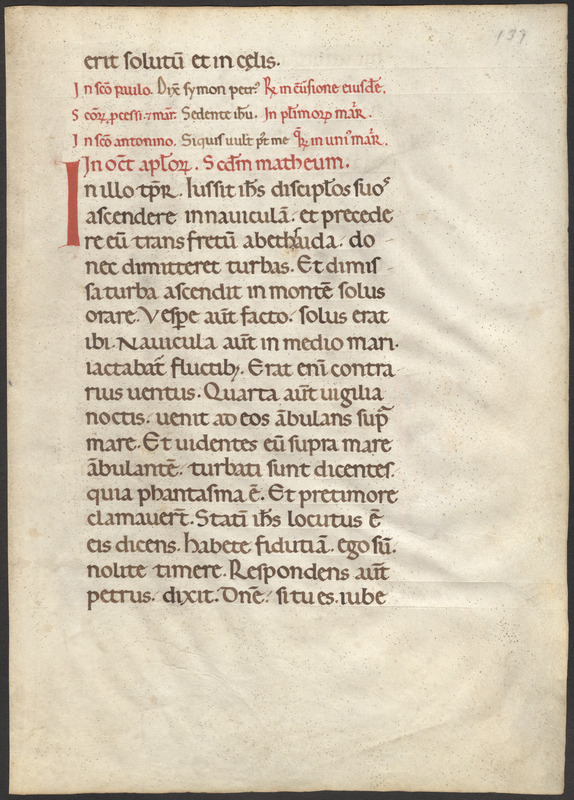 137
erit solutū et in cęlis.
In scō pauło. Dix̄ symon petr⁹ R̄ in cūsione eiusdē.
S cōꝝ ꝓcessi ⁊ mar̄. Sedente ihū. In pl̄imoꝝ mar̄.
In scō antonino. Siquis uult p̄t me in uni⁹ mar̄.
In oct̄ apl̄oꝝ. Scd̄m matheum.
In illo tp̄r. Iussit ih̄s discipl̄os suo⁹
ascendere innauiculā. et precede
re eū trans fretū abethsaida. do
nec dimitteret turbas. Et dimis
sa turba ascendit in montē solus
orare. Vesp̄e aūt facto. solus erat
ibi. Nauicula aūt in medio mari.
iactabat̄ fluctibꝫ. Erat enī contra
rius uentus. Quarta aūt uigilia
noctis. uenit ad eos ābulans sup̄
mare. Et uidentes eū supra mare
ābulantē. turbati sunt dicentes.
quia phantasma ē. Et pretimore
clamauer̄t. Statī ih̄s locutus ē
eis dicens. habete fidutiā. ego sū.
nolite timere. Respondens aūt
petrus. dixit. Dn̄e. si tu es. iube